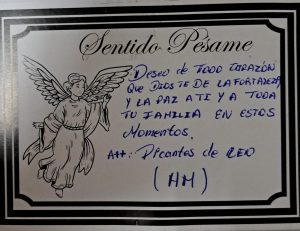 Sentido Pésame
Deseo de TODO CORAZÓN
QUE DIOS TE DE LA FORTALEZA
Y LA PAZ A TI Y A TODA
TU FAMILIA EN ESTOS
MOMENTOS.
Att: Picantes de
(HM)